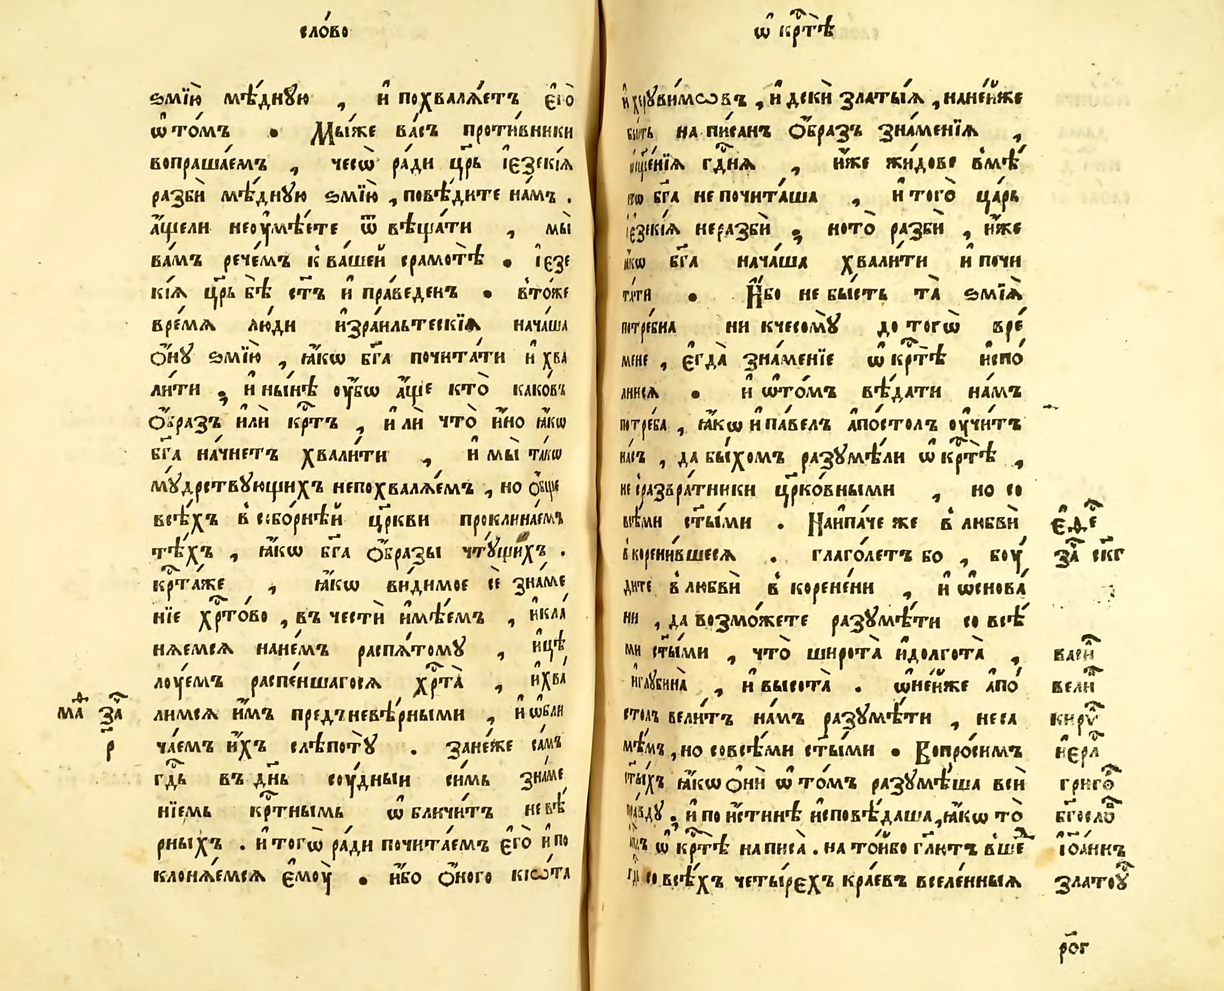 сло́во
ѕмїю̀ мѣ́дную , и҆ похвалѧ́етъ є҆го̀
ѡ҆ то́мъ . Мы́же ва́съ проти́вники
вопраша́емъ , чесѡ̀ ра́ди цр҃ь і҆езекі́ѧ
разбѝ мѣ́дную ѕмїю̀ , повѣ́дите на́мъ .
а҆́щели неѹмѣ́ете ѿ вѣща́ти , мы̀
ва́мъ рече́мъ к ва́шей срамотѣ̀ . і҆езе
кі́ѧ цр҃ь бѣ̀ ст҃ъ и҆ пра́веденъ . в то́же
вре́мѧ лю́ди и҆зра́ильтескїѧ нача́ша
ѻ҆́ну ѕмїю̀ , ꙗ҆́кѡ бг҃а почита́ти и҆ хва
ли́ти , и҆ ны́нѣ ѹ҆́бѡ а҆́ще кто̀ каковъ
ѻ҆́бразъ и҆лѝ крⷭ҇тъ , и҆ лѝ что̀ и҆́но ꙗ҆́кѡ
бг҃а начне́тъ хвали́ти , и҆ мы̀ та́кѡ
му́дрствующихъ непохвалѧ́емъ , но ѻ҆́бще
всѣ́хъ в собо́рнѣй цр҃кви проклина́емъ
тѣ́хъ , ꙗ҆́кѡ бг҃а ѻ҆́бразы чту́щихъ .
крⷭ҇та́же , ꙗ҆́кѡ ви́димое сѐ зна́ме
нїе хрⷭ҇то́во , въ че́сти и҆мѣ́емъ , и҆ кла́
нѧемсѧ на не́мъ распѧ́тому , и҆ цѣ
лѹ́емъ распе́ншагосѧ хрⷭ҇та̀ , и҆ хва́
лимсѧ и҆́мъ предъ невѣ́рными , и҆ ѡ҆бли
ча́емъ и҆́хъ слѣпотꙋ̀ . зане́же са́мъ
гдⷭ҇ь въ дн҃ь сѹ́дныи си́мъ зна́ме
нїемь крⷭ҇тнымь ѡ҆ бличи́тъ невѣ́
рныхъ . и҆ тогѡ̀ ра́ди почита́емъ є҆го̀ и҆ по
клонѧ́емсѧ є҆мѹ̀ . и҆́бо ѻ҆́ного кїѡ́та
мѳⷣ за҃ⷱ
р
ѡ҆ крⷭ҇тѣ̀
и҆ херꙋви́мѡвъ , и҆ дскѝ златы́ѧ , на не́йже
бы́ть на пи́санъ ѻ҆́бразъ зна́менїѧ ,
гдⷭ҇нѧ , и҆́же жи́дове вмѣ́
сто бг҃а не почита́ша , и҆ того̀ ца́рь
і҆езекі́ѧ не разбѝ , но то̀ разбѝ , и҆́же
ꙗ҆́кѡ бг҃а нача́ша хвали́ти и҆ почи
та́ти . И҆́бо не бы́сть та̀ ѕмїѧ̀
потре́бна ни к чесо́му до тогѡ̀ вре́
мене , є҆гда̀ зна́менїе ѡ҆ крⷭ҇тѣ̀ и҆спо́
лнисѧ . и҆ ѡ҆ то́мъ вѣ́дати на́мъ
потре́ба , ꙗ҆́кѡ и҆ па́велъ а҆по́столъ ѹ҆чи́тъ
на́съ , да бы́хомъ разꙋмѣ́ли ѡ҆ крⷭ҇тѣ̀ ,
не с развра́тники црⷦ҇ко́вными , но со
всѣ́ми ст҃ы́ми . Наипа́че же в любвѝ
в корени́вшеесѧ . глаго́летъ бо , бѹ́
дите в любвѝ в корене́ни , и҆ ѡ҆снова́
ни , да возмо́жете разꙋмѣ́ти со всѣ́
ми ст҃ы́ми , что̀ широта̀ и҆ долгота̀ ,
и҆ глубина̀ , и҆ высота̀ . ѡ҆ не́йже а҆по́
столъ вели́тъ на́мъ разꙋмѣ́ти , не са
мѣ́мъ , но со всѣ́ми ст҃ы́ми . Вопро́симъ
ст҃ы́хъ ꙗ҆́кѡ ѻ҆нѝ ѡ҆ то́мъ разꙋмѣ́ша всѝ
пра́вду , и҆ по и҆́стинѣ и҆сповѣ́даша , ꙗ҆́кѡ то̀
ѡ҆ крⷭ҇тѣ̀ написа̀ . на то́ибо гл҃етъ в ше́
со всѣ́хъ четы́рехъ кра́евъ вселе́нныѧ
є҆ѳⷭ҇е
за҃ⷱ ск҃г
васи
вели
кирꙋ
и҆ерⷭ҇л
григо
бг҃осло
і҆ѡа́ннъ
златоу
рог